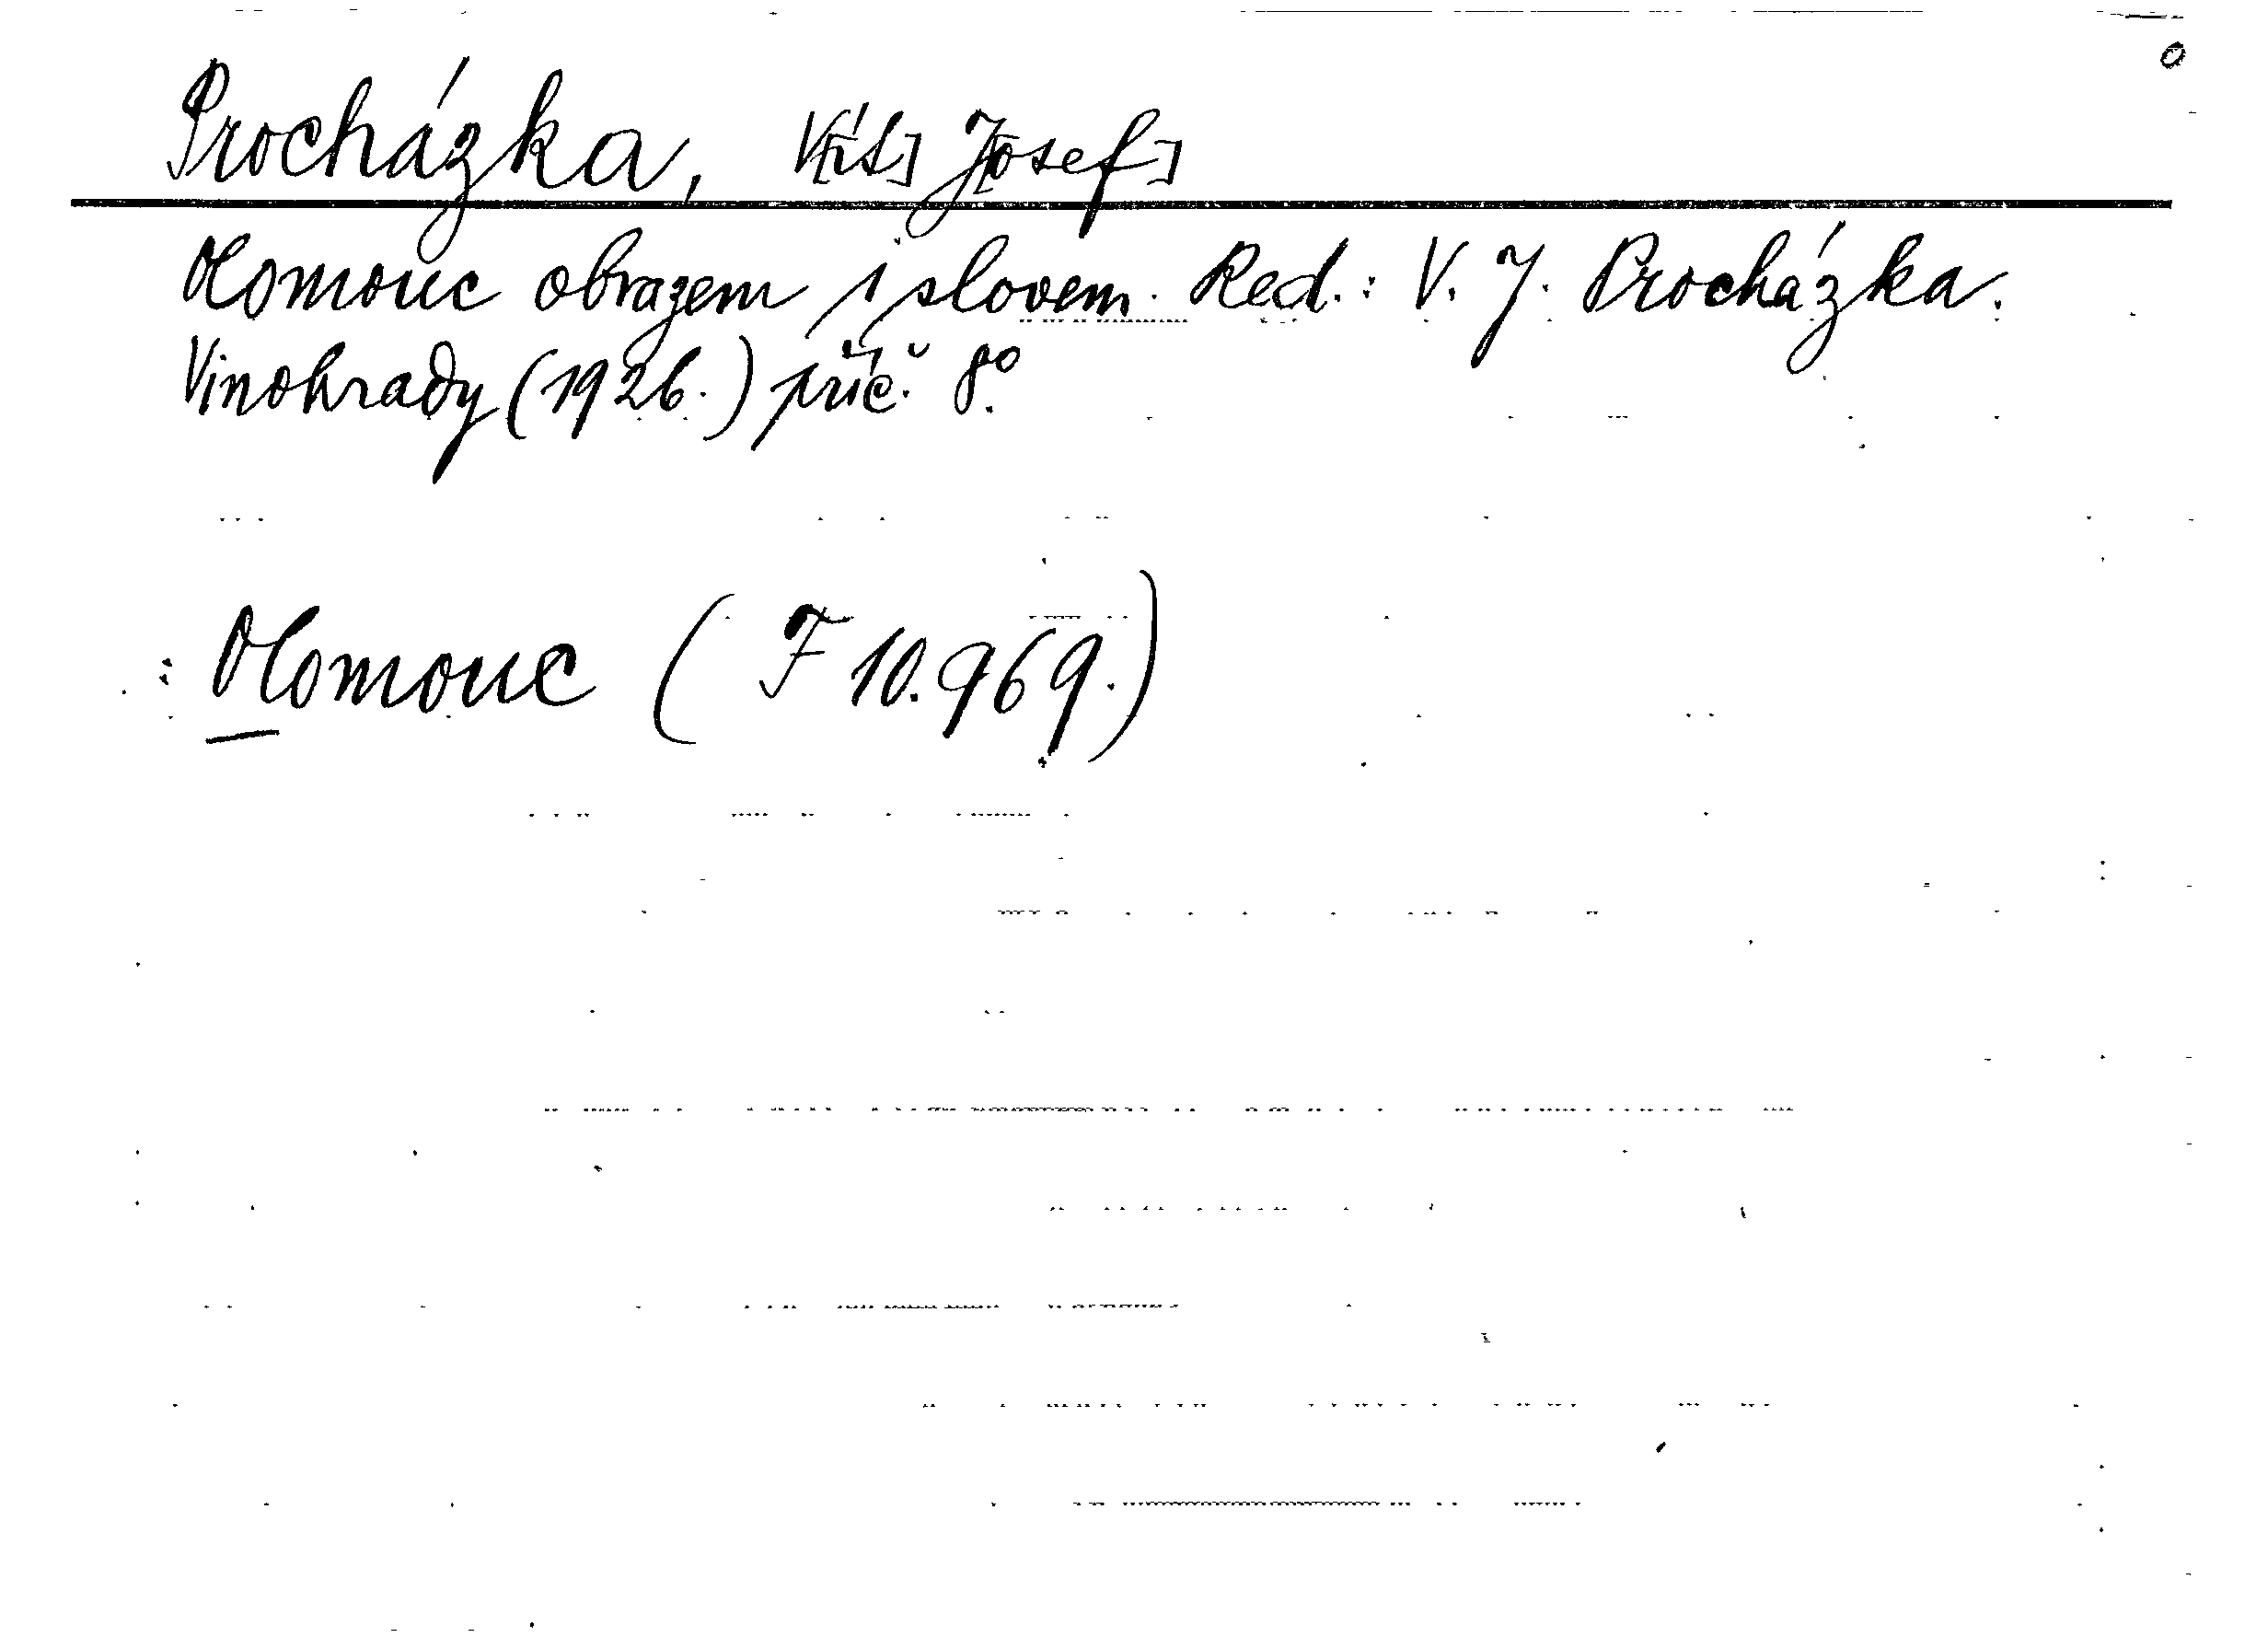 o
Procházka, V[ít] J[osef]
Olomouc obrazem i slovem. Red.: V. J. Procházka.
Vinohrady (1926.) příč. 8°.
: Olomouc (F 10.969.)